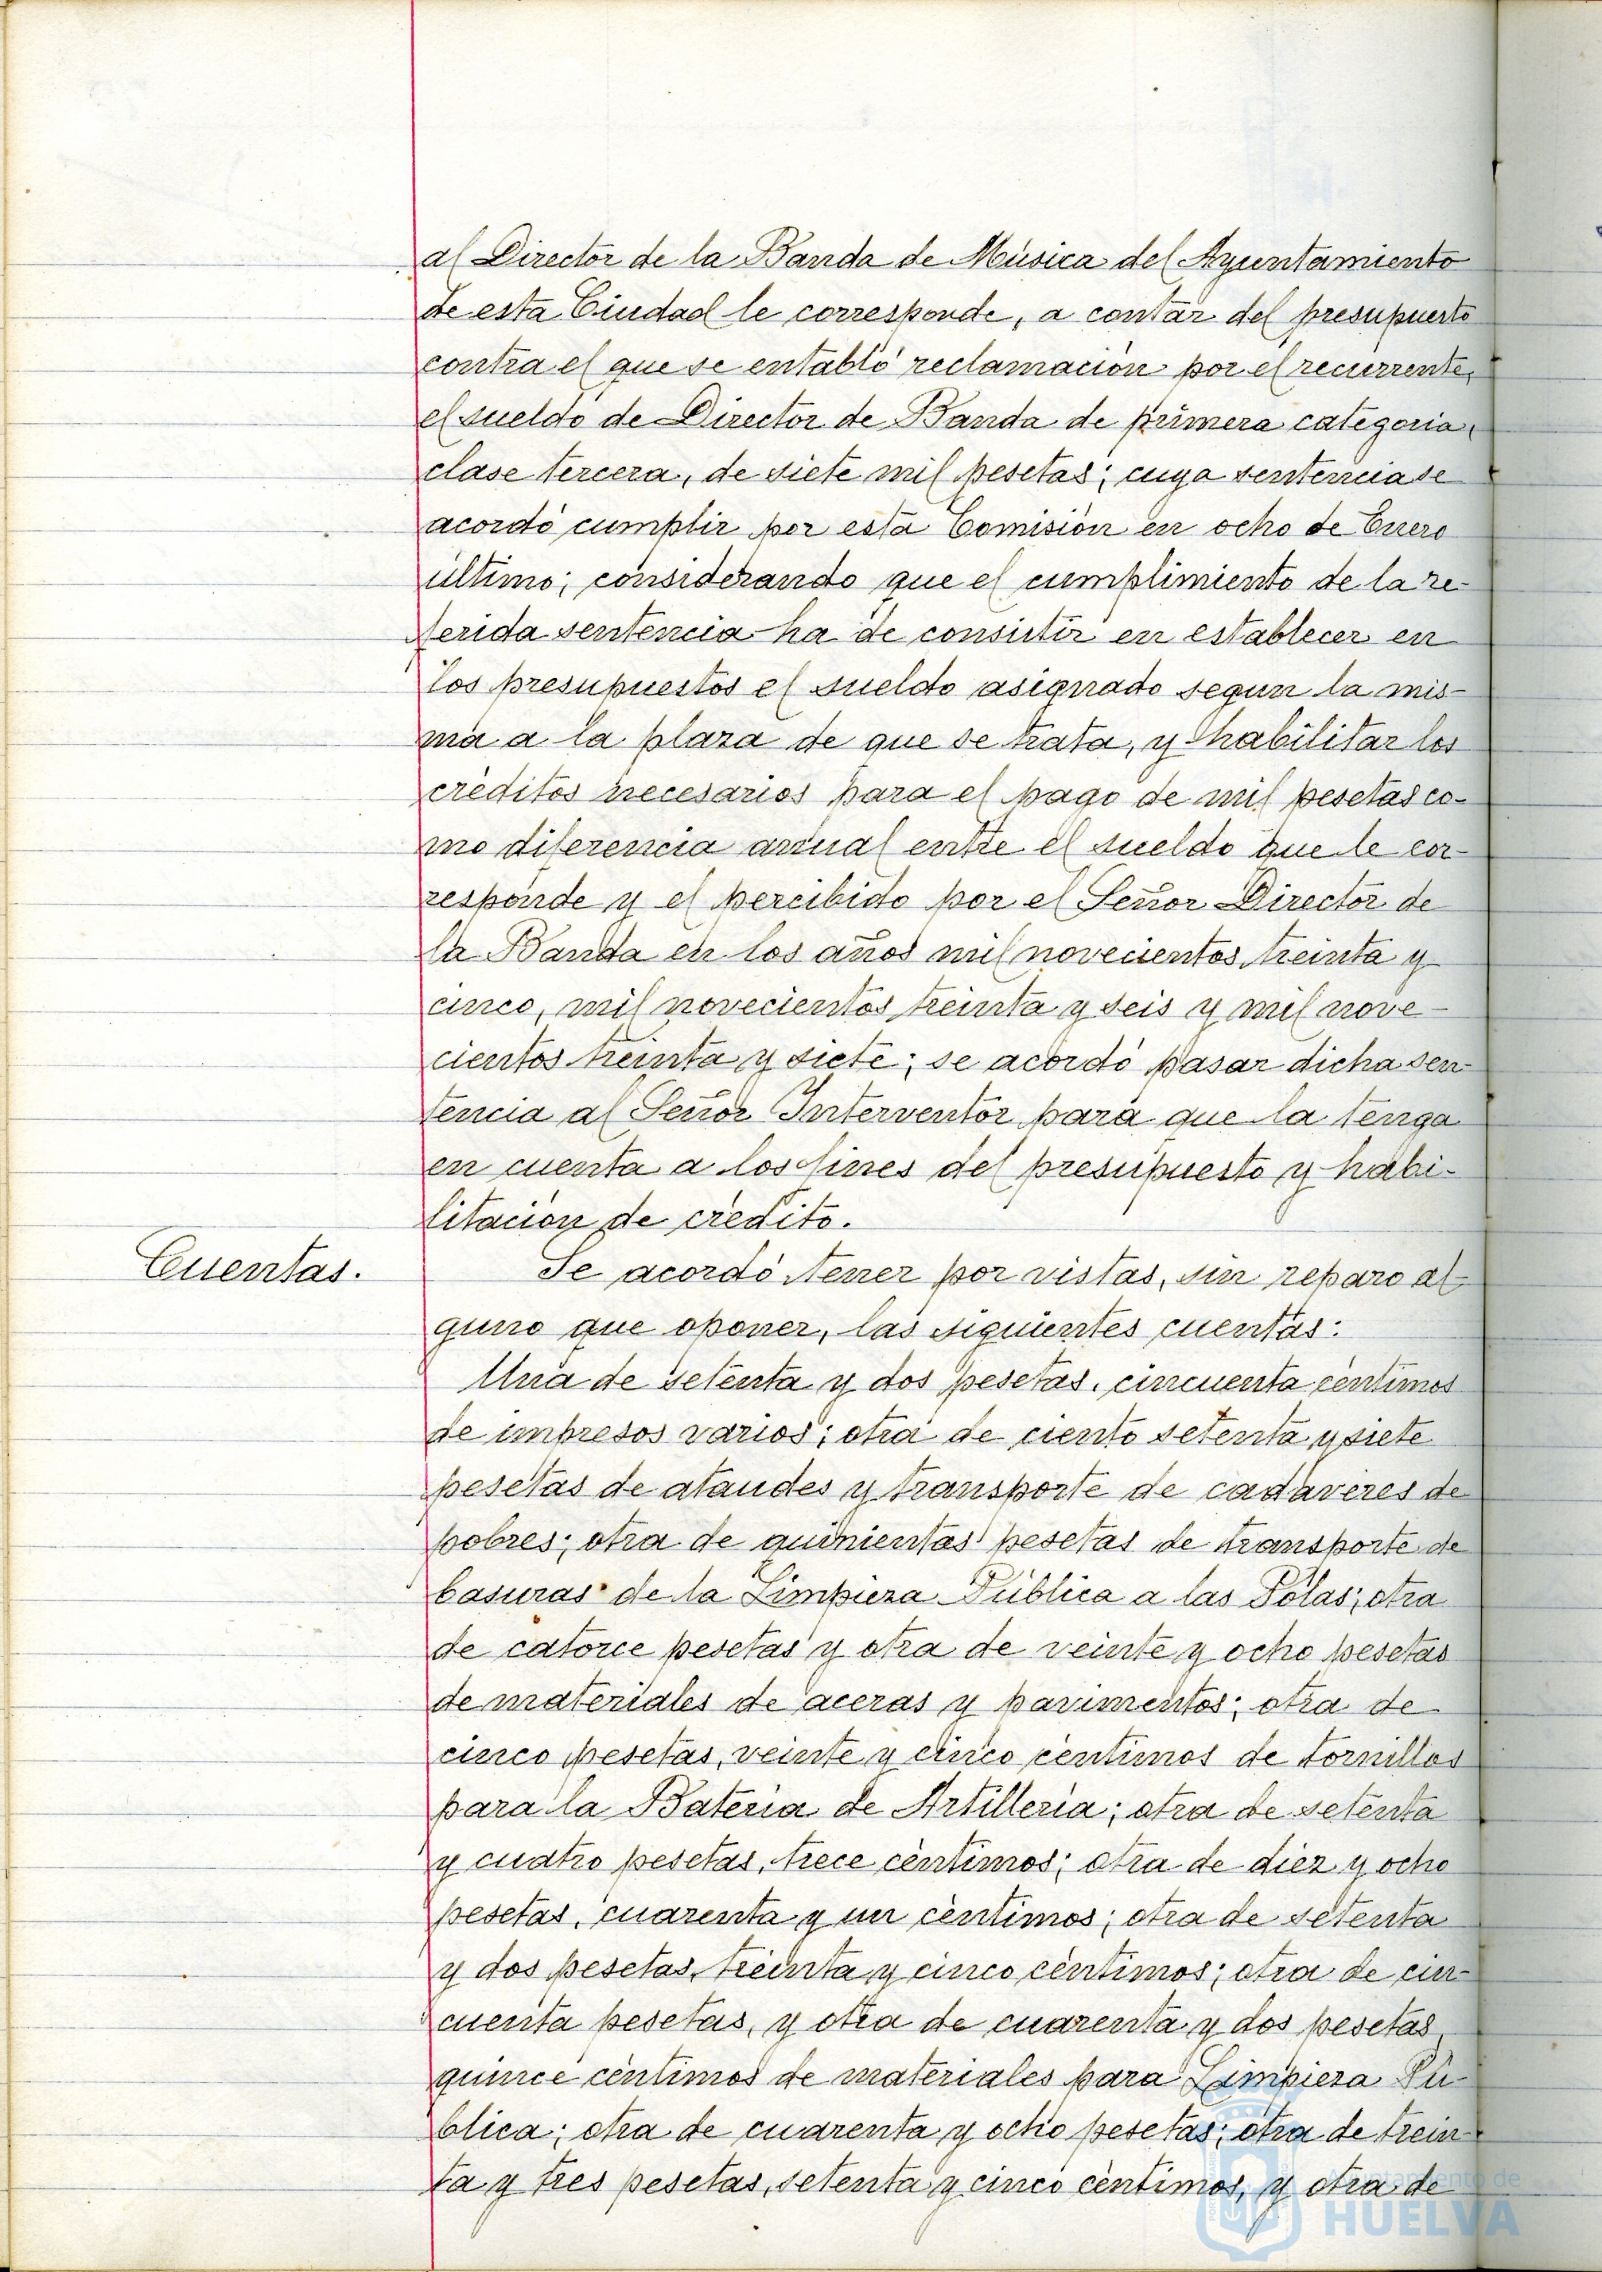 al Director de la Banda de Música del Ayuntamiento
de esta Ciudad le corresponde, a contar del presupuesto
contra el que se entabló reclamación por el recurrente,
el sueldo de Director de Banda de primera categoria,
clase tercera, de siete mil pesetas; cuya sentencia se
acordó cumplir por esta Comisión en ocho de Enero
último; considerando que el cumplimiento de la re-
ferida sentencia ha de consistir en establecer en
los presupuestos el sueldo asignado segun la mis-
ma a la plaza de que se trata, y habilitar los
créditos necesarios para el pago de mil pesetas co-
mo diferencia anual entre el sueldo que le cor-
responde y el percibido por el Señor Director de
la Banda en los años mil novecientos treinta y
cinco, mil novecientos treinta y seis y mil nove-
cientos treinta y siete; se acordó pasar dicha sen-
tencia al Señor Interventor para que la tenga
en cuenta a los fines del presupuesto y habi-
litación de crédito.
Cuentas.
Se acordó tener por vistas, sin reparo al-
guno que oponer, las siguientes cuentas:
Una de setenta y dos pesetas, cincuenta céntimos
de impresos varios; otra de ciento setenta y siete
pesetas de ataudes y transporte de cadáveres de
pobres; otra de quinientas pesetas de transporte de
basuras de la Limpieza Pública a las Solas; otra
de catorce pesetas y otra de veinte y ocho pesetas
de materiales de aceras y pavimentos; otra de
cinco pesetas, veinte y cinco céntimos de tornillos
para la Bateria de Artilleria; otra de setenta
y cuatro pesetas, trece céntimos; otra de diez y ocho
pesetas, cuarenta y un céntimos; otra de setenta
y dos pesetas, treinta y cinco céntimos; otra de cin-
cuenta pesetas, y otra de cuarenta y dos pesetas,
quince céntimos de materiales para Limpieza Pú-
blica; otra de cuarenta y ocho pesetas; otra de trein-
ta y tres pesetas, setenta y cinco céntimos, y otra de
Ayuntamiento de
HUELVA